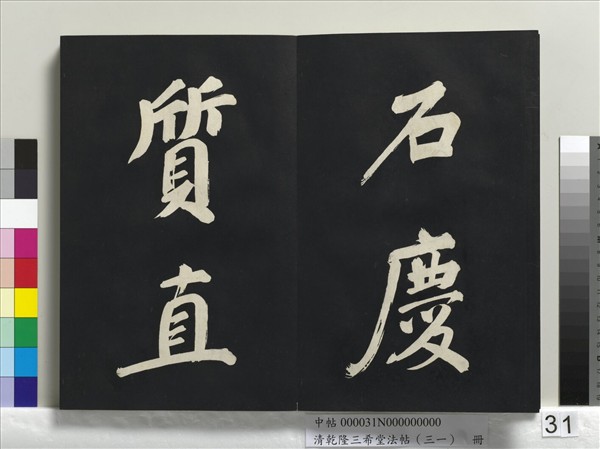 石慶
質直
中帖 000031N000000000
清乾隆三希堂法帖（三一） 冊
31